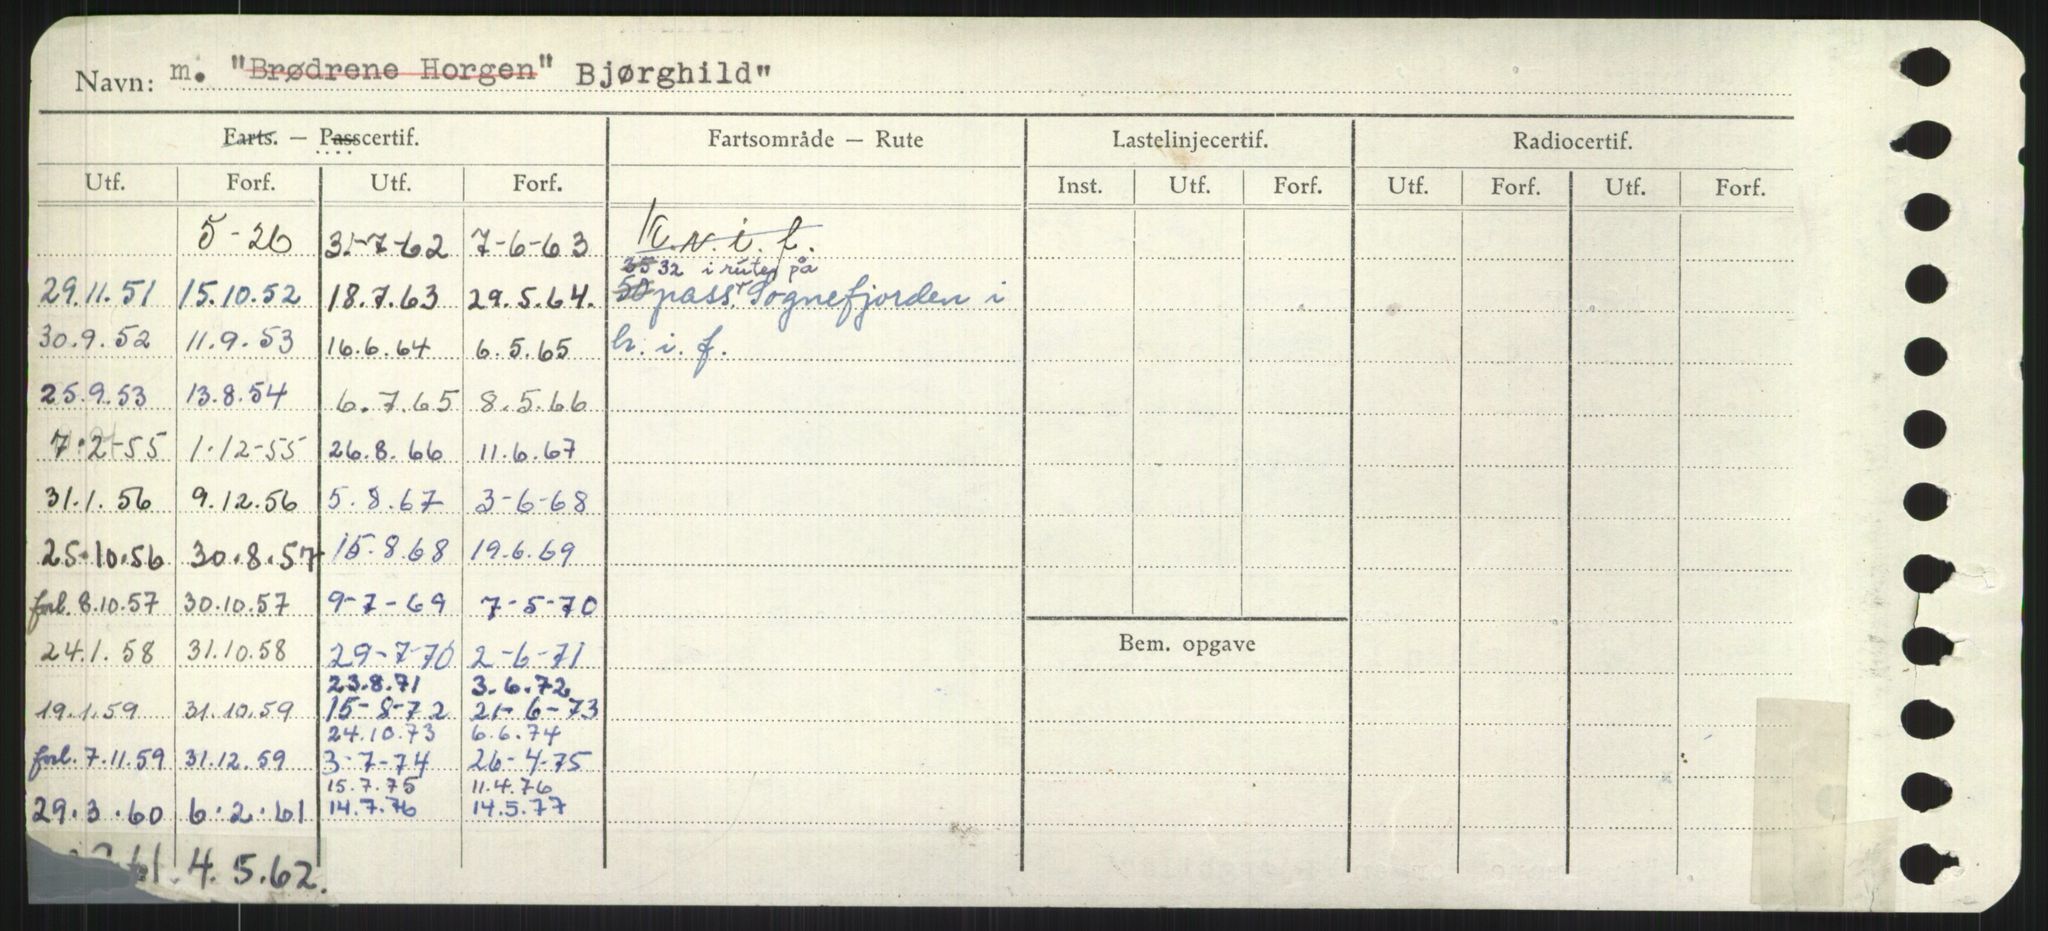 Navn: m. "Brødrene Horgen" Bjørghild"
Farts. — Passcertif. Fartsområde — Rute Lastelinjecertif. Radiocertif.
Utf. Forf. Utf. Forf. Inst. Utf. Forf. Utf. Forf. Utf. Forf.
5-26 31-7-62 7-6-63 K.v.i.f.
35 32 i rute på
29.11.51 15.10.52 18.7.63 29.5.64. 50 pass. Sognefjorden i
30.9.52 11.9.53 16.6.64 6.5.65 h.i.f.
25.9.53 13.8.54 6.7.65 8.5.66
7.2-55 1.12-55 26.8.66 11.6.67
31.1.56 9.12.56 5.8.67 3-6-68
25.10.56 30.8.57 15.8.68 19.6.69
forl. 8.10.57 30.10.57 9-7-69 7-5-70
24.1.58 31.10.58 29-7-70 2-6-71
Bem. opgave
23.8.71 3.6.72
19.1.59 31.10.59 15-8-72 21-6-73
24.10.73 6.6.74
forl. 7.11.59 31.12.59 3-7-74 26-4-75
15.7.75 11.4.76
29.3.60 6.2.61 14.7.76 14.5.77
61. 4.5.62.